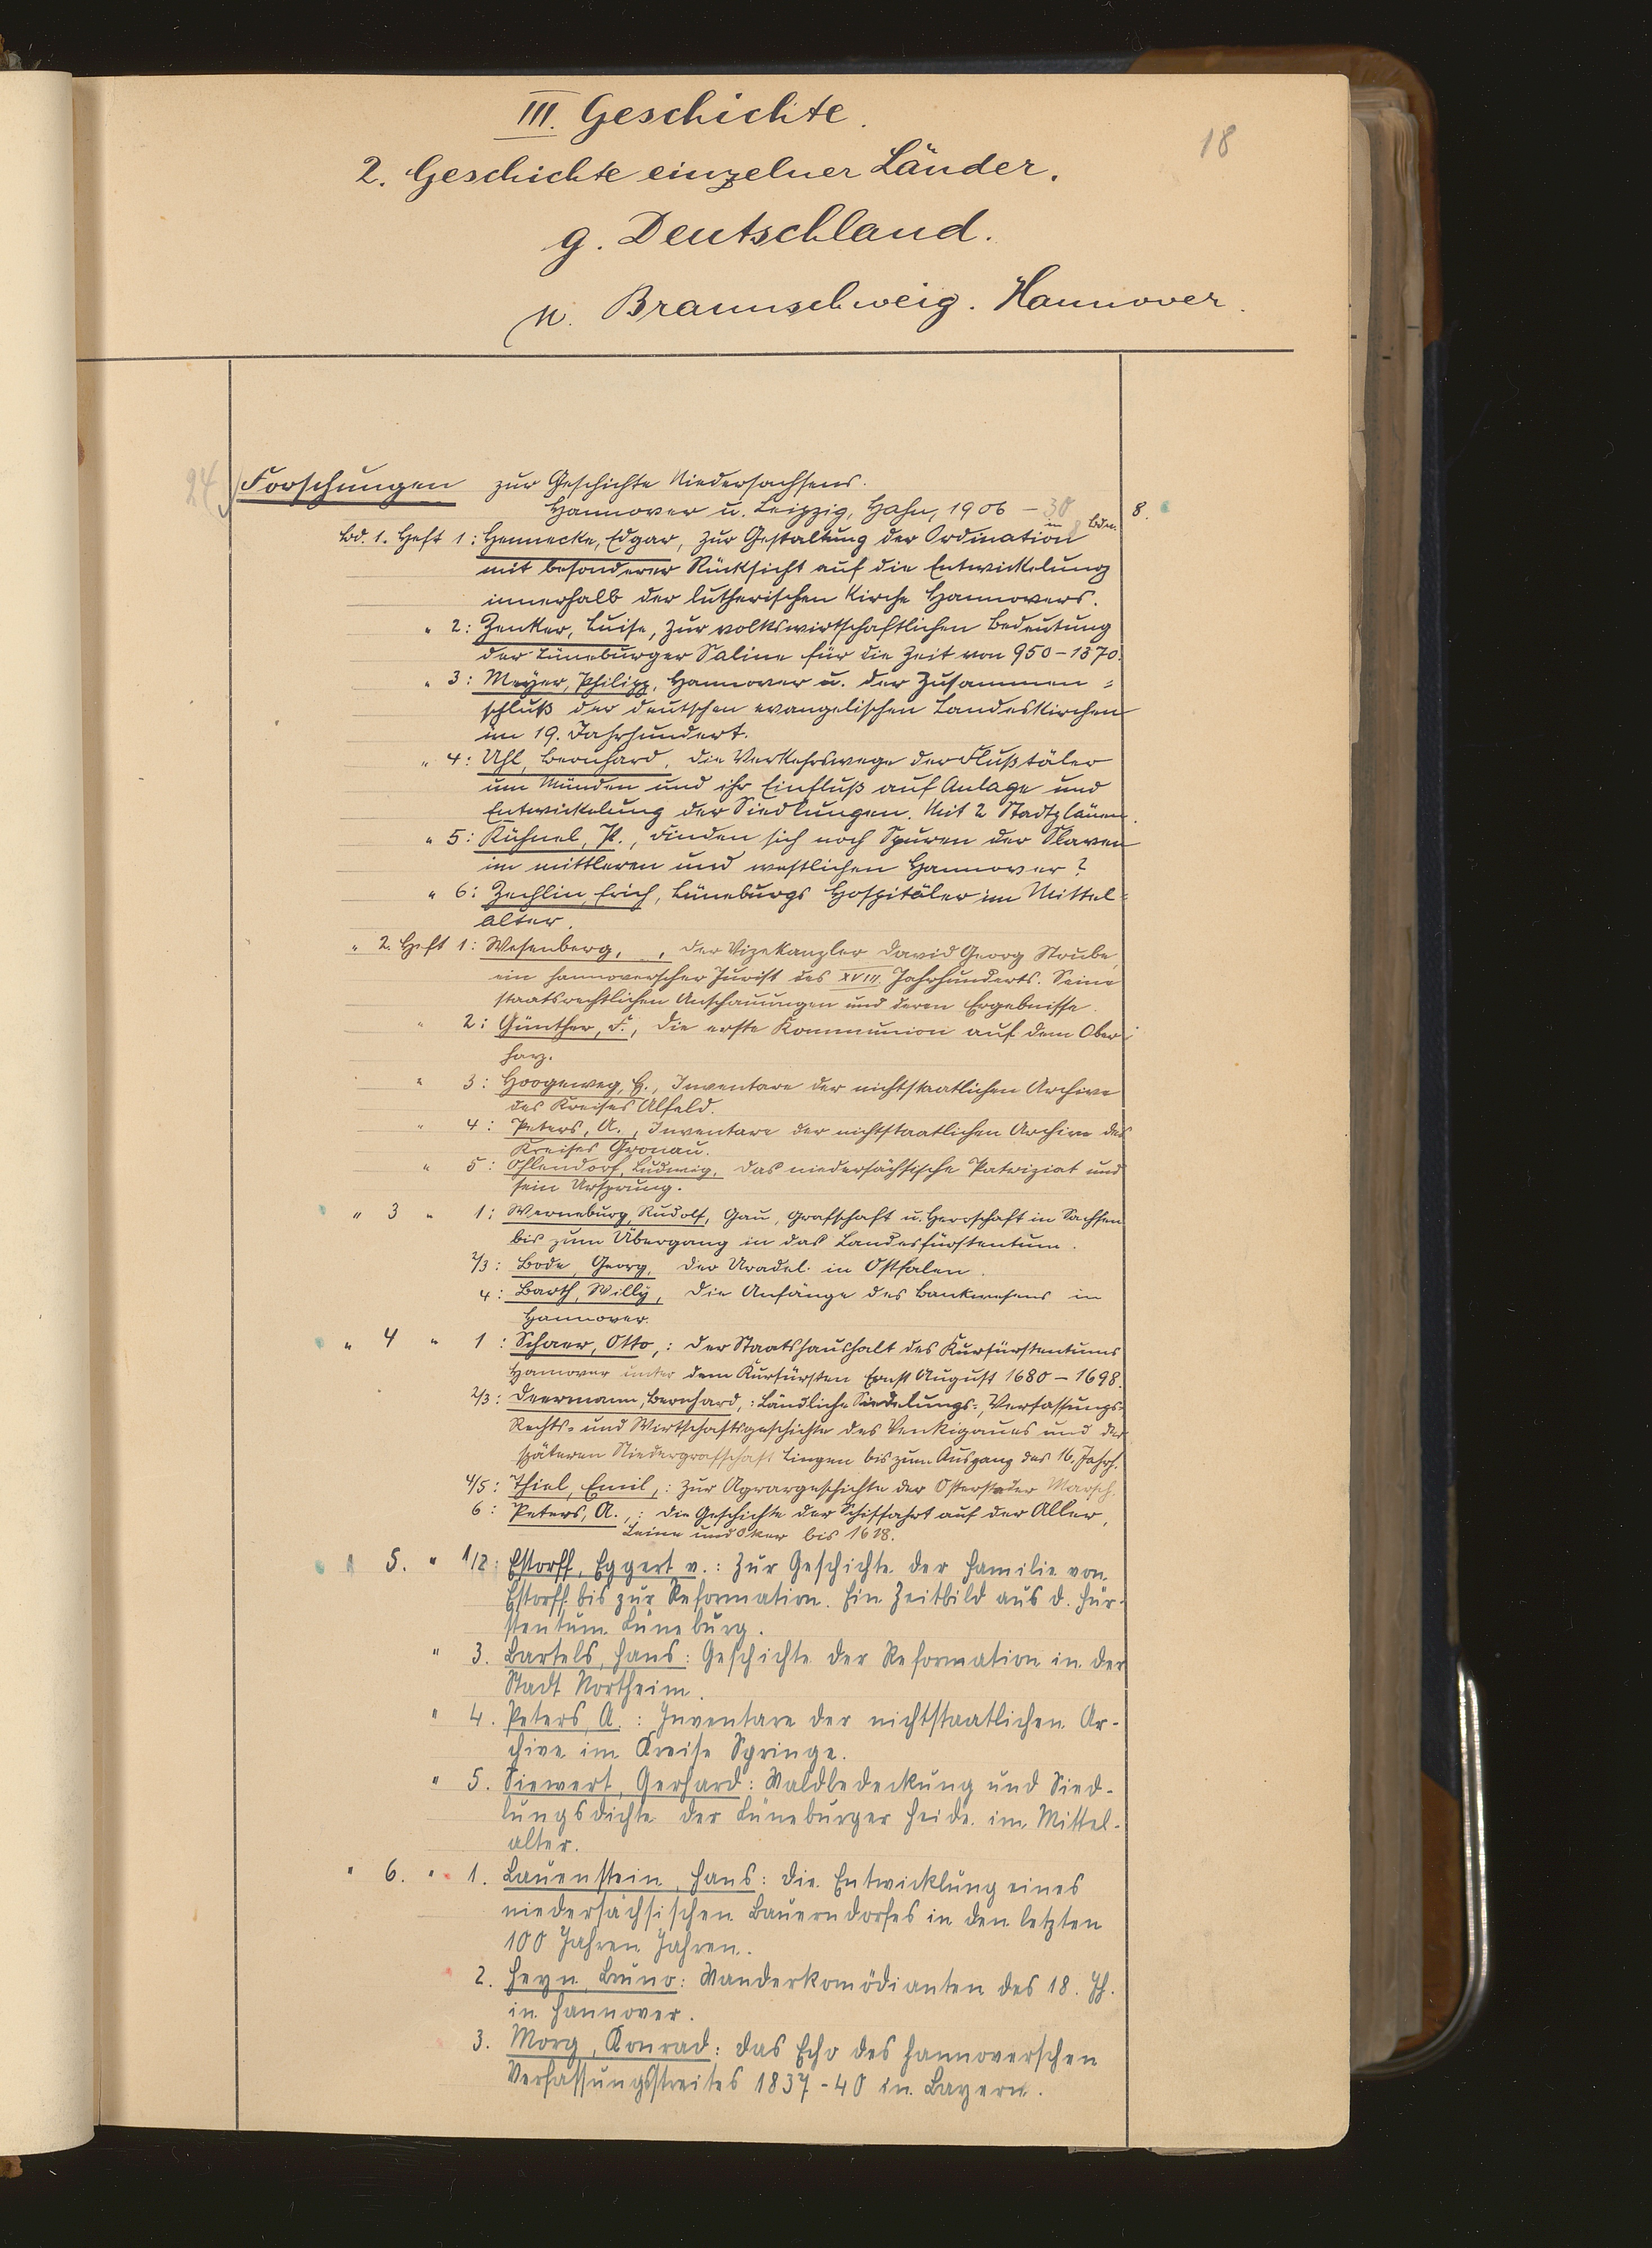 18
III. Geschichte.
2. Geschichte einzelner Länder.
g. Deutschland.
Braunschweig. Hannover.
24
Forschungen zur Geschichte Niedersachsens.
Hannover u. Leipzig, Hahn, 1906 - 30 8.
in Bden.
Bd. 1. Heft 1: Hennecke, Edgar, Zur Gestaltung der Ordination
mit besonderer Rücksicht auf die Entwickelung
innerhalb der lutherischen Kirche Hannovers.
" 2: Zenker, Luise, Zur volkswirtschaftlichen Bedeutung
der Lüneburger Saline für die Zeit von 950-1370.
" 3: Meyer, Philipp, Hannover u. der Zusammen=
schluß der deutschen evangelischen Landeskirchen
im 19. Jahrhundert.
" 4: Uhl, Bernhard, Die Verkehrswege der Flußtäler
um Münden und ihr Einfluß auf Anlage und
Entwickelung der Siedlungen. Mit 2 Stadtplänen.
" 5: Kühnel, P., Finden sich noch Spuren der Slaven
im mittleren und westlichen Hannover?
" 6: Zechlin, Erich, Lüneburgs Hospitäler im Mittel=
alter.
" 2. Heft 1: Wesenberg, , Der Vizekanzler David Georg Strube,
ein hannoverscher Jurist des XVIII. Jahrhunderts. Seine
staatsrechtlichen Anschauungen und deren Ergebnisse.
" 2: Günther, F., Die erste Kommunion auf dem Ober=
harz.
" 3: Hoogeweg, H., Inventare der nichtstaatlichen Archive
des Kreises Alfeld.
" 4: Peters, A., Inventare der nichtstaatlichen Archive des
Kreises Gronau.
" 5: Ohlendorf, Ludwig, Das niedersächsische Patriziat und
sein Ursprung.
" 3 " 1: Werneburg, Rudolf, Gau, Grafschaft u. Herrschaft in Sachsen
bis zum Übergang in das Landesfürstentum.
2/3: Bode, Georg, Der Uradel in Ostfalen.
4: Barth, Willy, Die Anfänge des Bankwesens in
Hannover.
" 4 " 1: Schaer, Otto,: Der Staatshaushalt des Kurfürstentums
Hannover unter dem Kurfürsten Ernst August 1680-1698.
2/3: Deermann, Bernhard,: Ländliche Siedelungs-, Verfassungs-
Rechts- und Wirtschaftsgeschichte des Venkigaues und der
späteren Niedergrafschaft Lingen bis zum Ausgang des 16. Jahrh.
4/5: Thiel, Emil,: Zur Agrargeschichte der Osterstader Marsch.
6: Peters, A.,: Die Geschichte der Schiffahrt auf der Aller,
Leine und Oker bis 1618.
" 5. " 1/2: Estorff, Eggert v.: Zur Geschichte der Familie von
Estorff bis zur Reformation. Ein Zeitbild aus d. Für-
stentum Lüneburg.
" 3. Bartels, Hans: Geschichte der Reformation in der
Stadt Northeim.
" 4. Peters, A.: Inventare der nichtstaatlichen Ar-
chive im Kreise Springe.
" 5. Siewert, Gerhard: Waldbedeckung und Sied-
lungsdichte der Lüneburger Heide im Mittel-
alter.
" 6. " 1. Lauenstein, Hans: Die Entwicklung eines
niedersächsischen Bauerndorfes in den letzten
100 Jahren Jahren.
2. Heyn, Bruno: Wanderkomödianten des 18. Jh.
in Hannover.
3. Morg, Konrad: Das Echo des hannoverschen
Verfassungsstreites 1837-40 in Bayern.